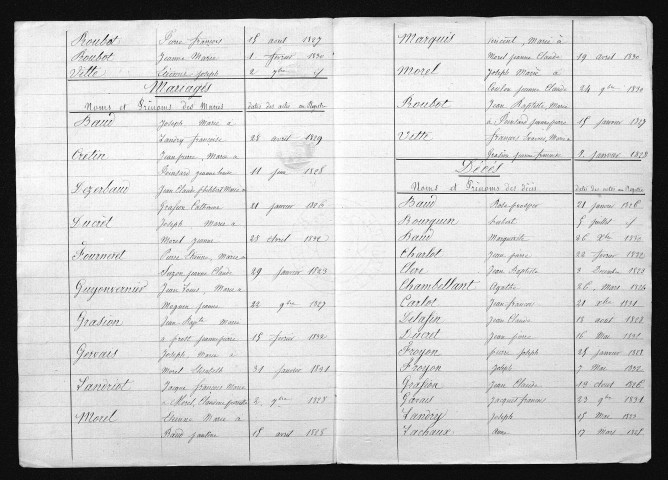 Roubot Pierre françois 15 avril 1827
Roubot Jeanne Marie 1 février 1830
Vette Etienne Joseph 2 7bre
Mariages
Noms et Prénoms des Mariés dates des actes au Registre
Baud Joseph Marié à
Landry françoise 28 avril 1829
Cretin Jean pierre, Marié à
11 juin 1828
Jean Claude philibert Marié à
Grafion Catherine 21 janvier 1826
Ducret Joseph Marié à
Morel jeanne 25 avril
Pierre Etienne, Marié à
Suzon jeanne Claude 29 janvier 1823
Guyonvernier Jean Louis Marié à
jeanne 22 9bre 1827
Grasion Jean Bapte Marié
à prost jeanne pierre 15 février 1832
Gervais Joseph Marié à
Morel Elisabeth 31 janvier 1821
Landriot Jacques françois Marié
à Morel, Claudine 2 7bre 1828
Morel Etienne Marié à
Baud 18 avril 1825
Marquis vincent, Marié à
Morel jeanne Claude 19 avril 1830
Morel Joseph Marié à
jeanne Claude 24 9bre 1830
Roubot Jean Baptiste Marié
à jeanne pierre 15 janvier 1827
Vette françois Marié à
Grasion jeanne françoise 9 janvier 1828
Décès
Noms et Prénoms des décés dates des actes au Registre
Baud Rose prospere 21 janvier 1826
Bourquin hubert 5 juillet
Baud Marguerite 26 Xbre 1830
Charlot Jean pierre 22 février 1832
Clerc Jean Baptiste 3 Décembre 1821
Chambellant Agathe 26 Mars 1824
Carlot Jean françois 21 Xbre 1831
Jean Claude 18 aout 1828
Ducret Jean pierre 16 Mai
Froyon pierre joseph 25 janvier 1823
Froyon Joseph 7 Mai
Grasion Jean Claude 19 aout 1826
Jacques francois 23 9bre 1831
Landry Joseph 15 Mai
Lachaux 17 Mars